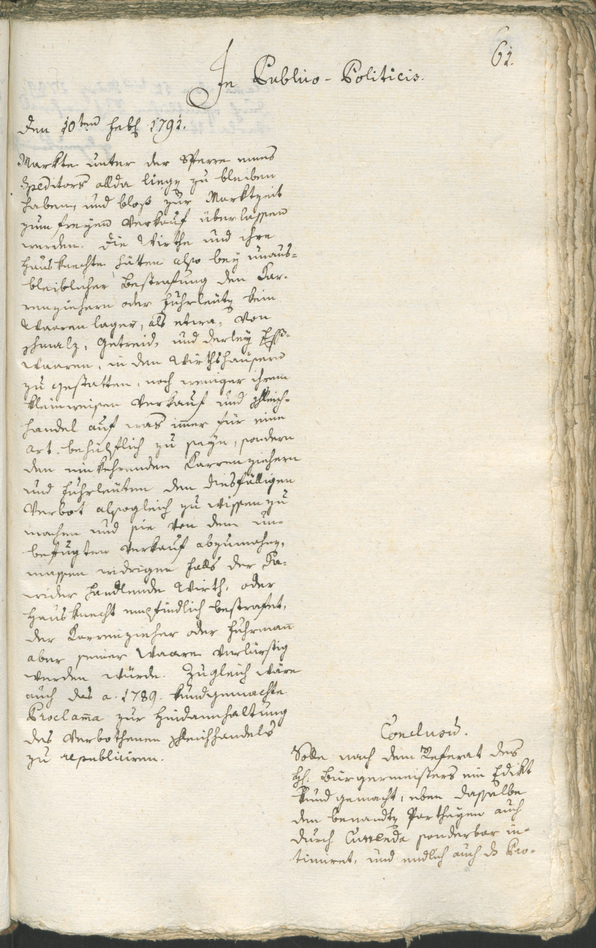 61.
In Publico-Politicis.
Den 10ten Feb. 1791.
Markte unter der Sperre eines
Speditors allda liegen zu bleiben
haben, und bloß zur Marktzeit
zum freyen Verkauf überlassen
werden. Die Wirthe und ihre
Hausknechte hätten also bey unaus-
bleiblicher Bestrafung den Kar-
renziehern oder Fuhrleuten kein
Waarenlager, als etwa, von
Schmalz, Getreid, und derley Eß-
waaren, in den Wirthshäusern
zu gestatten, noch weniger ihrem
kleinweisen Verkauf und Schleich-
handel auf was imer für eine
Art behülflich zu seyn, sondern
den einkehrenden Karrenziehern
und Fuhrleuten den diesfälligen
Verbot alsogleich zu wissen zu
machen und sie von dem un-
befugten Verkauf abzumahnen,
massen widrigen Falls der da-
wider handlende Wirth, oder
Hausknecht empfindlich bestrafet,
der Karrenzieher oder Fuhrmann
aber seiner Waare verlürstig
werden würde. Zugleich wäre
auch das a. 1789. kundgemachte
Proclama zur Hindanhaltung
des verbothenen Schleichhandels
zu republiciren.
Conclusum.
Solle nach dem Referat des
H. Bürgermeisters ein Edikt
kund gemacht, eben dasselbe
den benandten Partheyen auch
durch Currenda sonderbar in-
timiret, und endlich auch das Pro-